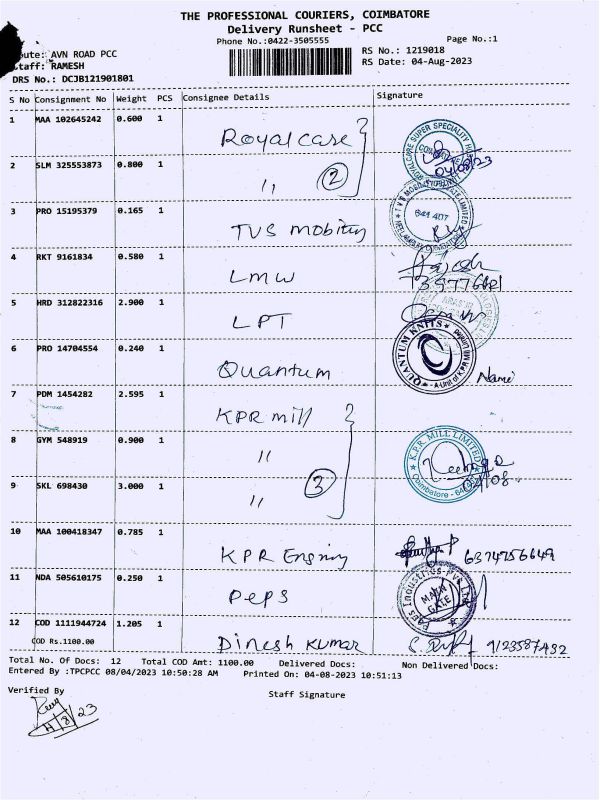 THE PROFESSIONAL COURIERS, COIMBATORE
Delivery Runsheet - PCC
Phone No.:0422-3505555
Page No.:1
oute: AVN ROAD PCC
RS No.: 1219018
Staff: RAMESH
RS Date: 04-Aug-2023
DRS No.: DCJB121901801
S No Consignment No Weight PCS Consignee Details Signature
1 MAA 102645242 0.600 1 Royalcare
04/08/23
2 SLM 325553873 0.800 1 ,, 2
3 PRO 15195379 0.165 1 TVS Mobility
641 407
4 RKT 9161834 0.580 1 LMW
5 HRD 312822316 2.900 1 LPT
6 PRO 14704554 0.240 1 Quantum
QUANTUM KNITS
- A Unit of K.P.R Mill Limited
7 PDM 1454282 2.595 1 KPR mill
8 GYM 548919 0.900 1 ,, 3
K.P.R. MILL LIMITED
Coimbatore - 641
04/08
9 SKL 698430 3.000 1 ,,
10 MAA 100418347 0.785 1 KPR Engning 6374756649
11 NDA 505610175 0.250 1 Peps
Peps Industries Pvt Ltd
MAIN GATE
12 COD 1111944724 1.205 1 Dinesh Kumar 9123587432
COD Rs.1100.00
Total No. Of Docs: 12 Total COD Amt: 1100.00 Delivered Docs: Non Delivered Docs:
Entered By :TPCPCC 08/04/2023 10:50:28 AM Printed On: 04-08-2023 10:51:13
Verified By
Staff Signature
8/23